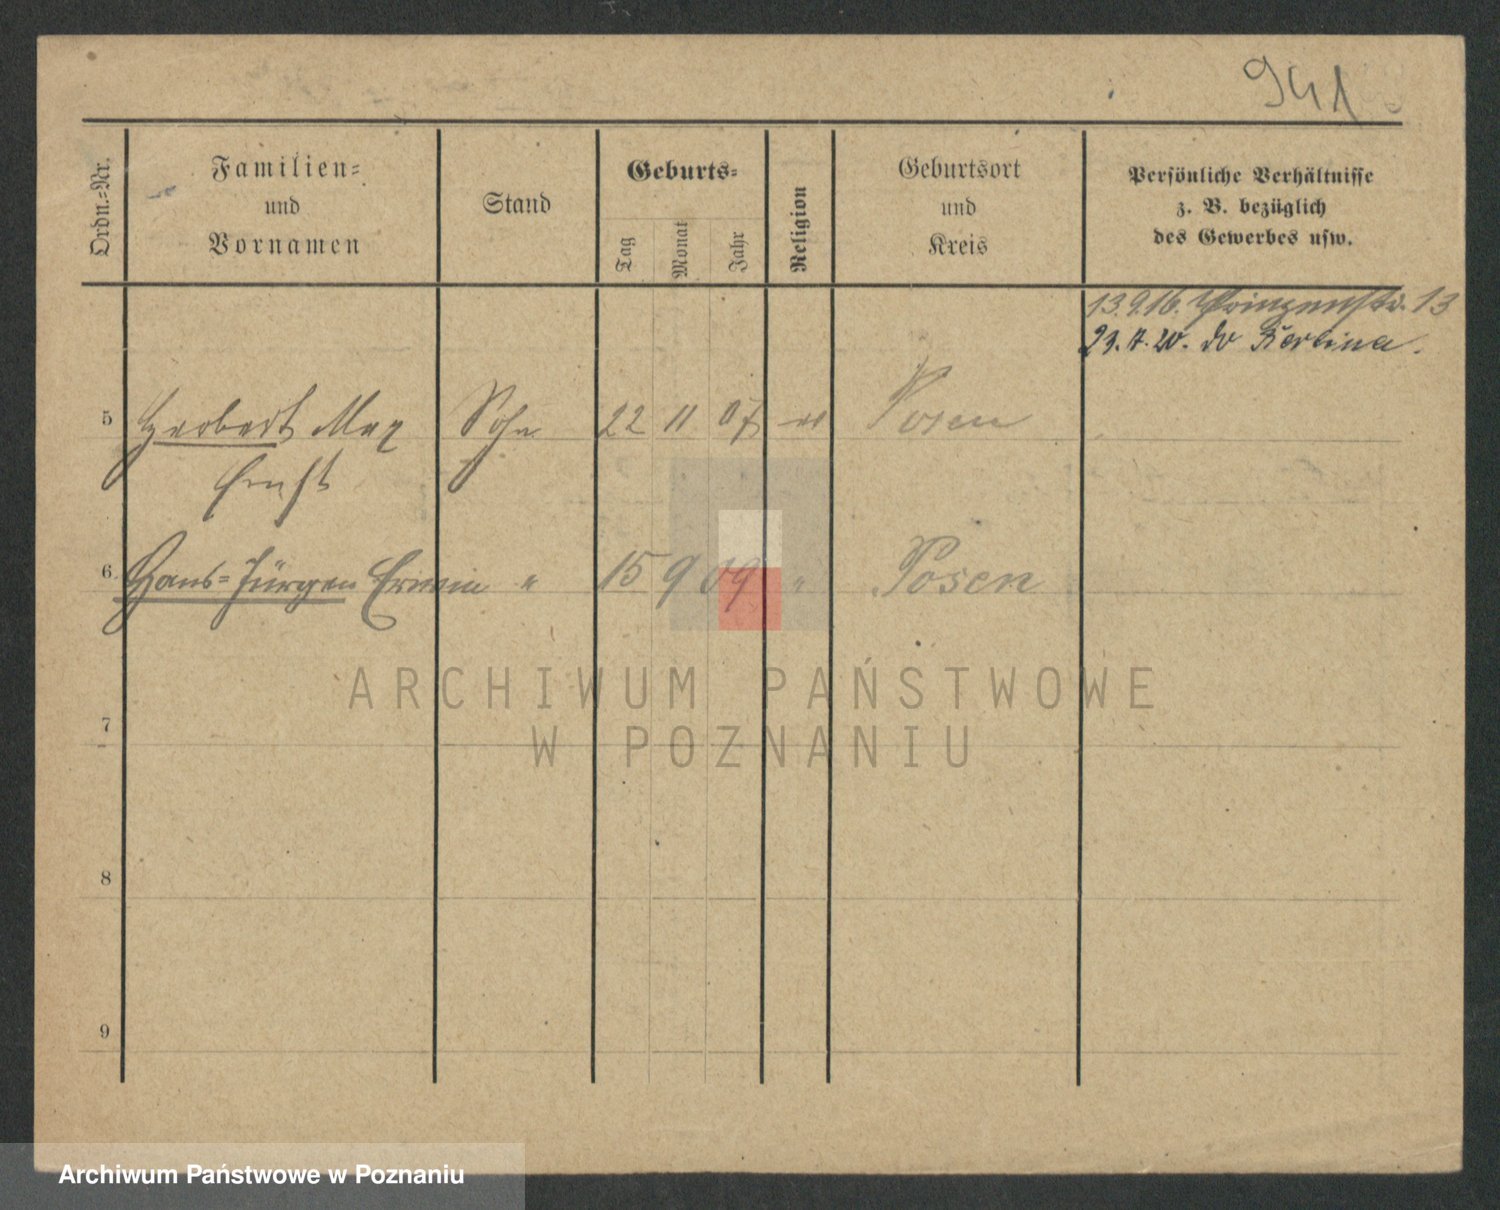 941
Ordn.-Nr.
Familien-
und
Vornamen
Stand
Geburts-
Tag
Monat
Jahr
Religion
Geburtsort
und
Kreis
Persönliche Verhältnisse
z. B. bezüglich
des Gewerbes usw.
13.9.16. Prinzenstr. 13
do Berlina.
5 Herbert Max Sohn 22 11 07 Posen
Ernst
6 Hans-Jürgen Erwin " 15 9 09 " Posen
ARCHIWUM PAŃSTWOWE
W POZNANIU
7
8
9
Archiwum Państwowe w Poznaniu